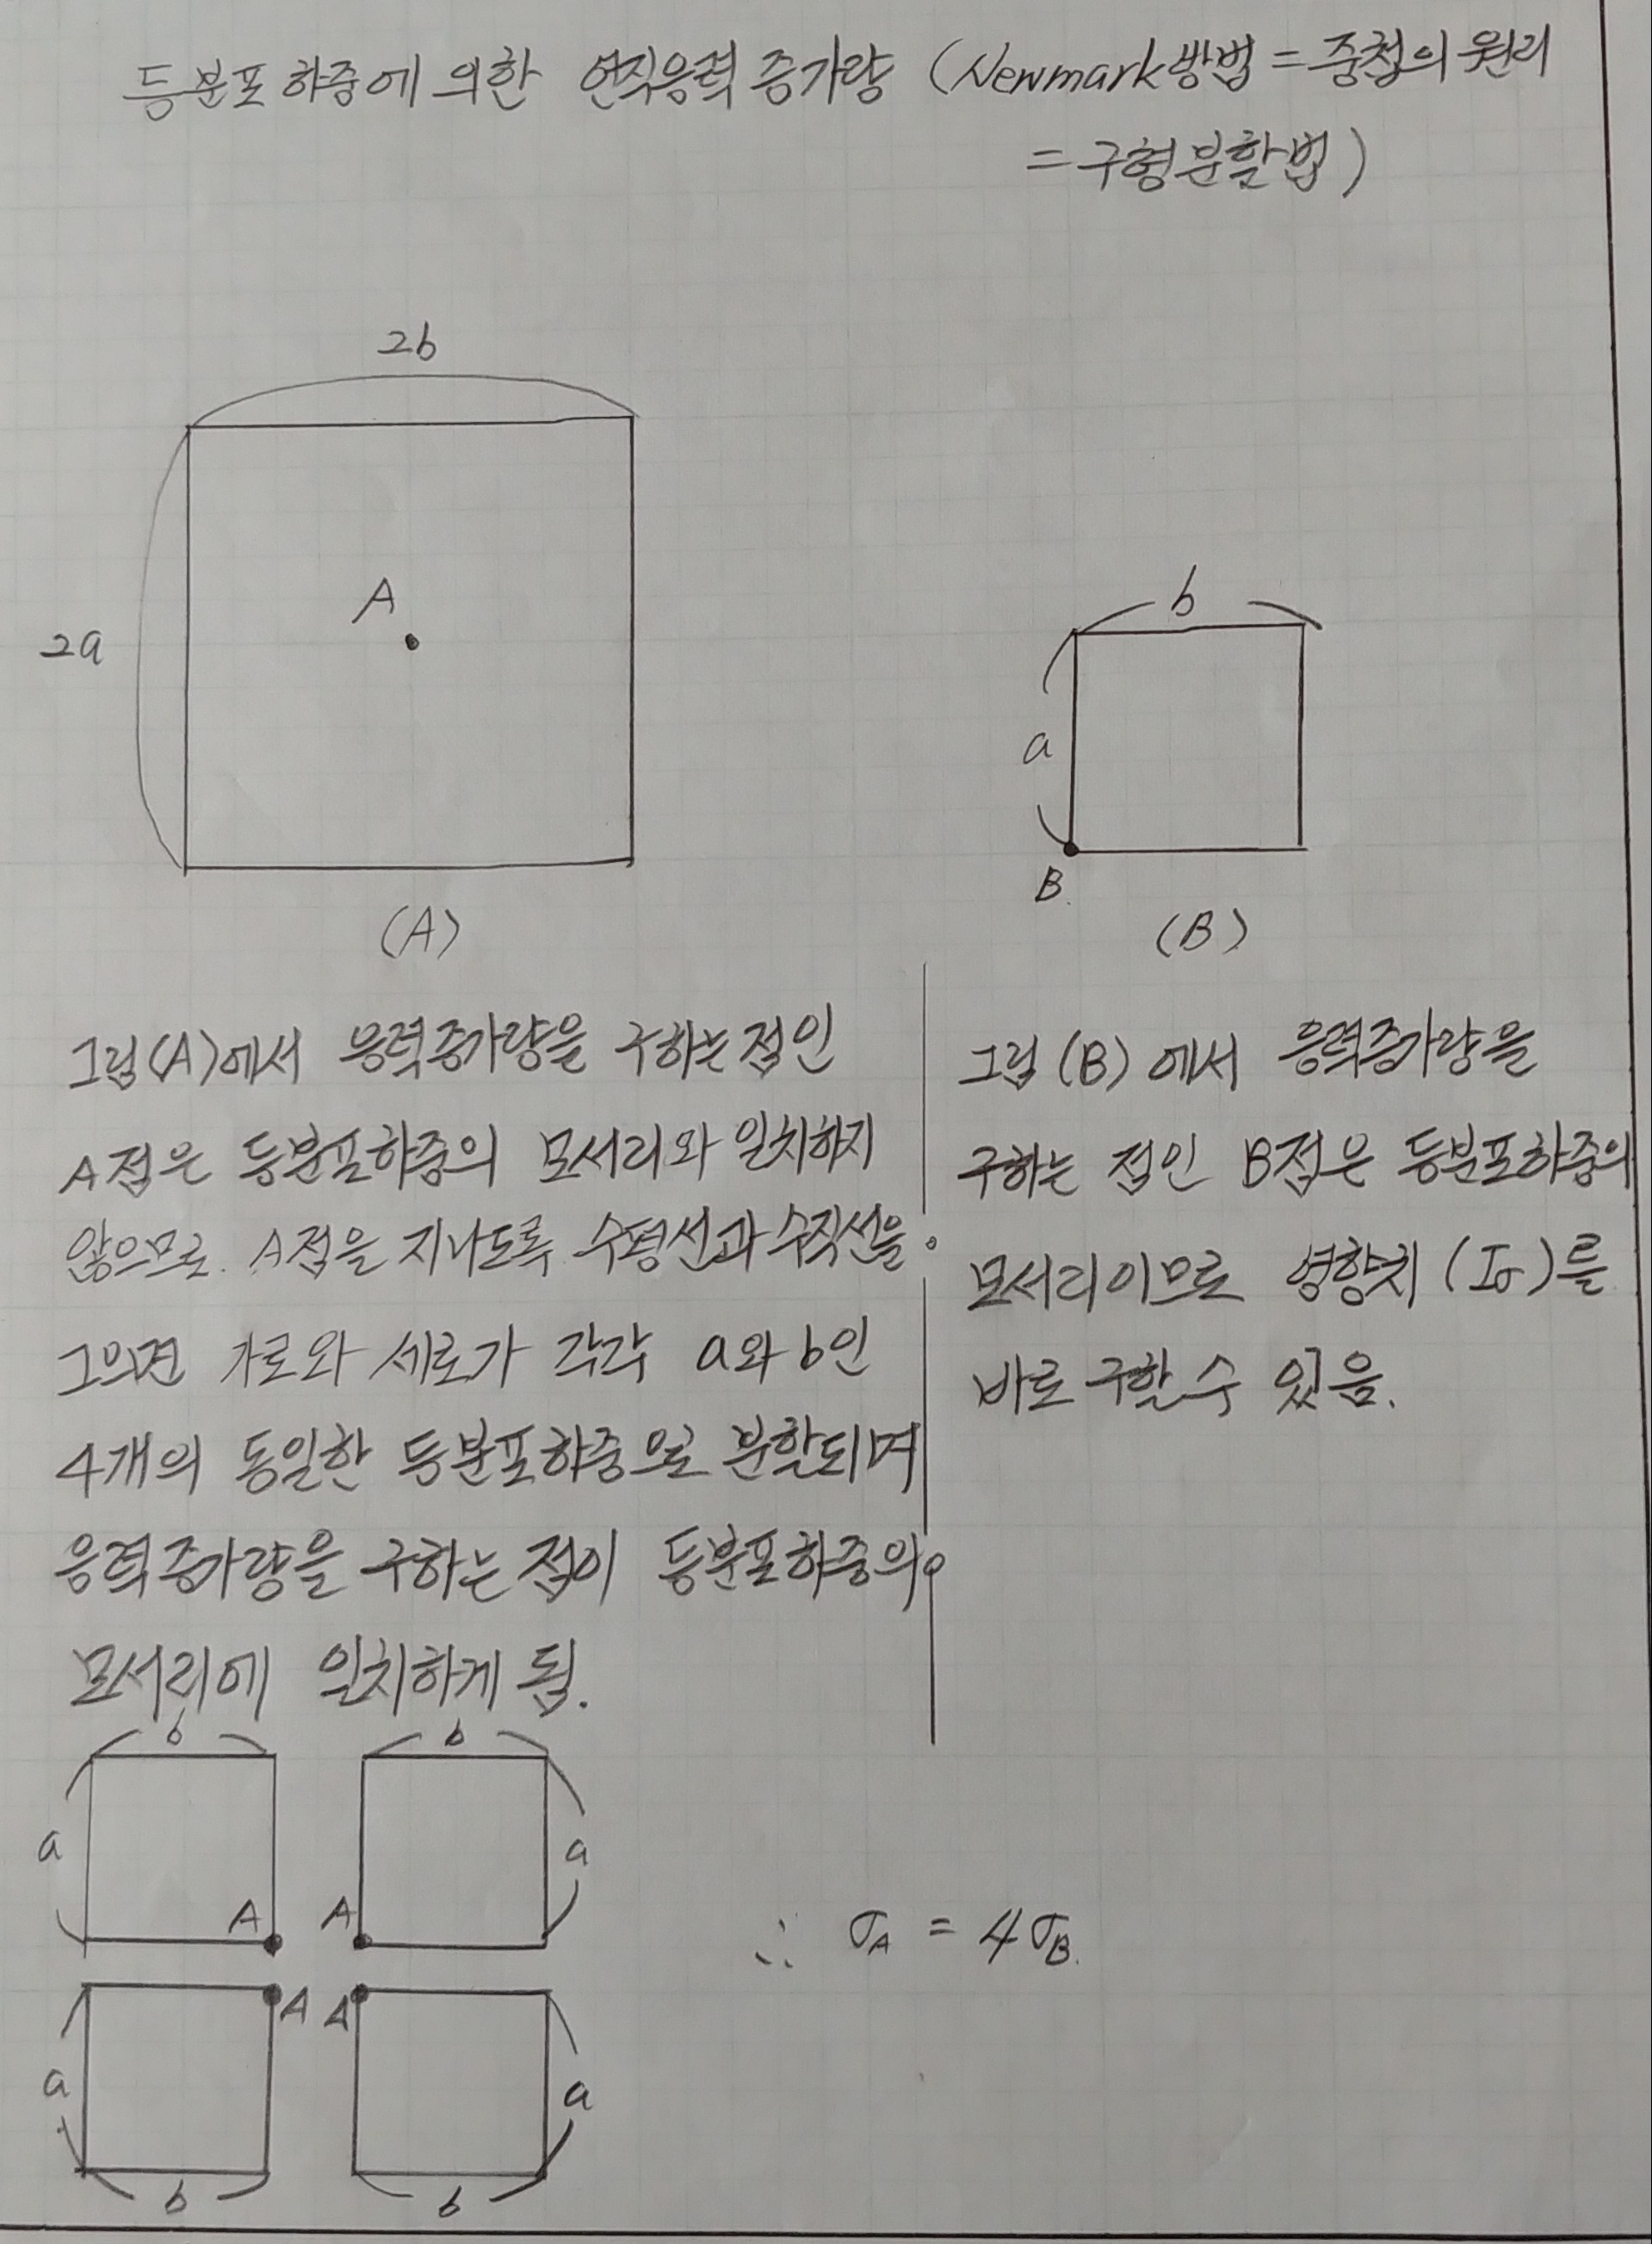 등분포하중에 의한 연직응력 증가량 (Newmark방법 = 중첩의 원리
= 구형분할법)
2b
A
2a
b
a
B
(A)
(B)
그림(A)에서 응력증가량을 구하는점인
A점은 등분포하중의 모서리와 일치하지
않으므로 A점을 지나도록 수평선과 수직선을
그으면 가로와 세로가 각각 a와 b인
4개의 동일한 등분포하중으로 분할되며
응력증가량을 구하는 점이 등분포하중의
모서리에 일치하게 됨.
그림 (B) 에서 응력증가량을
구하는 점인 B점은 등분포하중의
모서리이므로 영향치 (Iσ)를
바로 구할 수 있음.
b b
a a
A A
A A
a a
b b
∴ σA = 4σB.